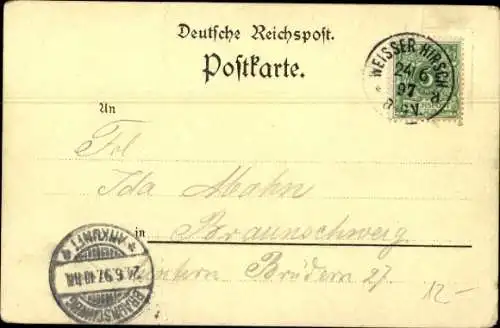 Deutsche Reichspost.
Postkarte.
WEISSER HIRSCH
24/6
97
An
Frl
Ida Mahn
in Braunschweig
Hintern Brüdern 27.
BRAUNSCHWEIG
24.6.97.10
* ANKUNFT *
12-